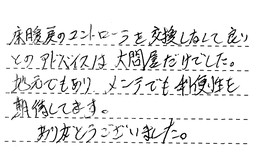 床暖房のコントローラを交換しなくて良い
とのアドバイスは大問屋だけでした。
地元でもあり メンテでも利便性を
期待してます。
ありがとうございました。